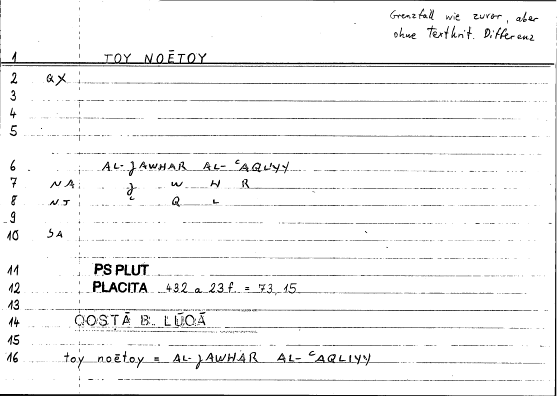 Grenzfall wie zuvor, aber
ohne Textkrit. Differenz
1 TOY NOĒTOY
2 QX
3
4
5
6 AL-JAWHAR AL-ʿAQLIYY
7 NA J W H R
8 NJ ʿ Q L
9
10 SA
11 PS PLUT
12 PLACITA 432 a 23f. = 73,15
13
14 QOSṬĀ B. LŪQĀ
15
16 toy noētoy = AL-JAWHAR AL-ʿAQLIYY